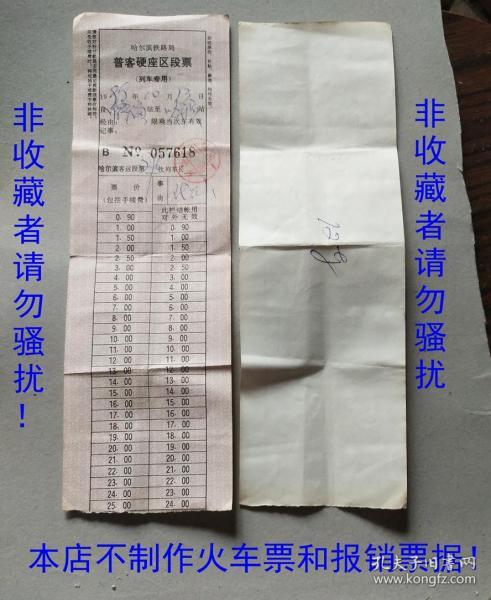 非收藏者请勿骚扰！
哈尔滨铁路局
普客硬座区段票
（列车专用）
19 年10月 日
自 站至 站
经由： 限乘当次车有效
记事：
B № 057618
哈尔滨客运段第
票价
（包括手续费）
事由
此栏结帐用
对外无效
0.90 0.90
1.00 1.00
1.50 1.50
2.00 2.00
2.50 2.50
3.00 3.00
4.00 4.00
5.00 5.00
6.00 6.00
7.00 7.00
8.00 8.00
9.00 9.00
10.00 10.00
11.00 11.00
12.00 12.00
13.00 13.00
14.00 14.00
15.00 15.00
16.00 16.00
17.00 17.00
18.00 18.00
19.00 19.00
20.00 20.00
21.00 21.00
22.00 22.00
23.00 23.00
24.00 24.00
25.00
非收藏者请勿骚扰
本店不制作火车票和报销票据！
孔夫子旧书网
www.kongfz.com